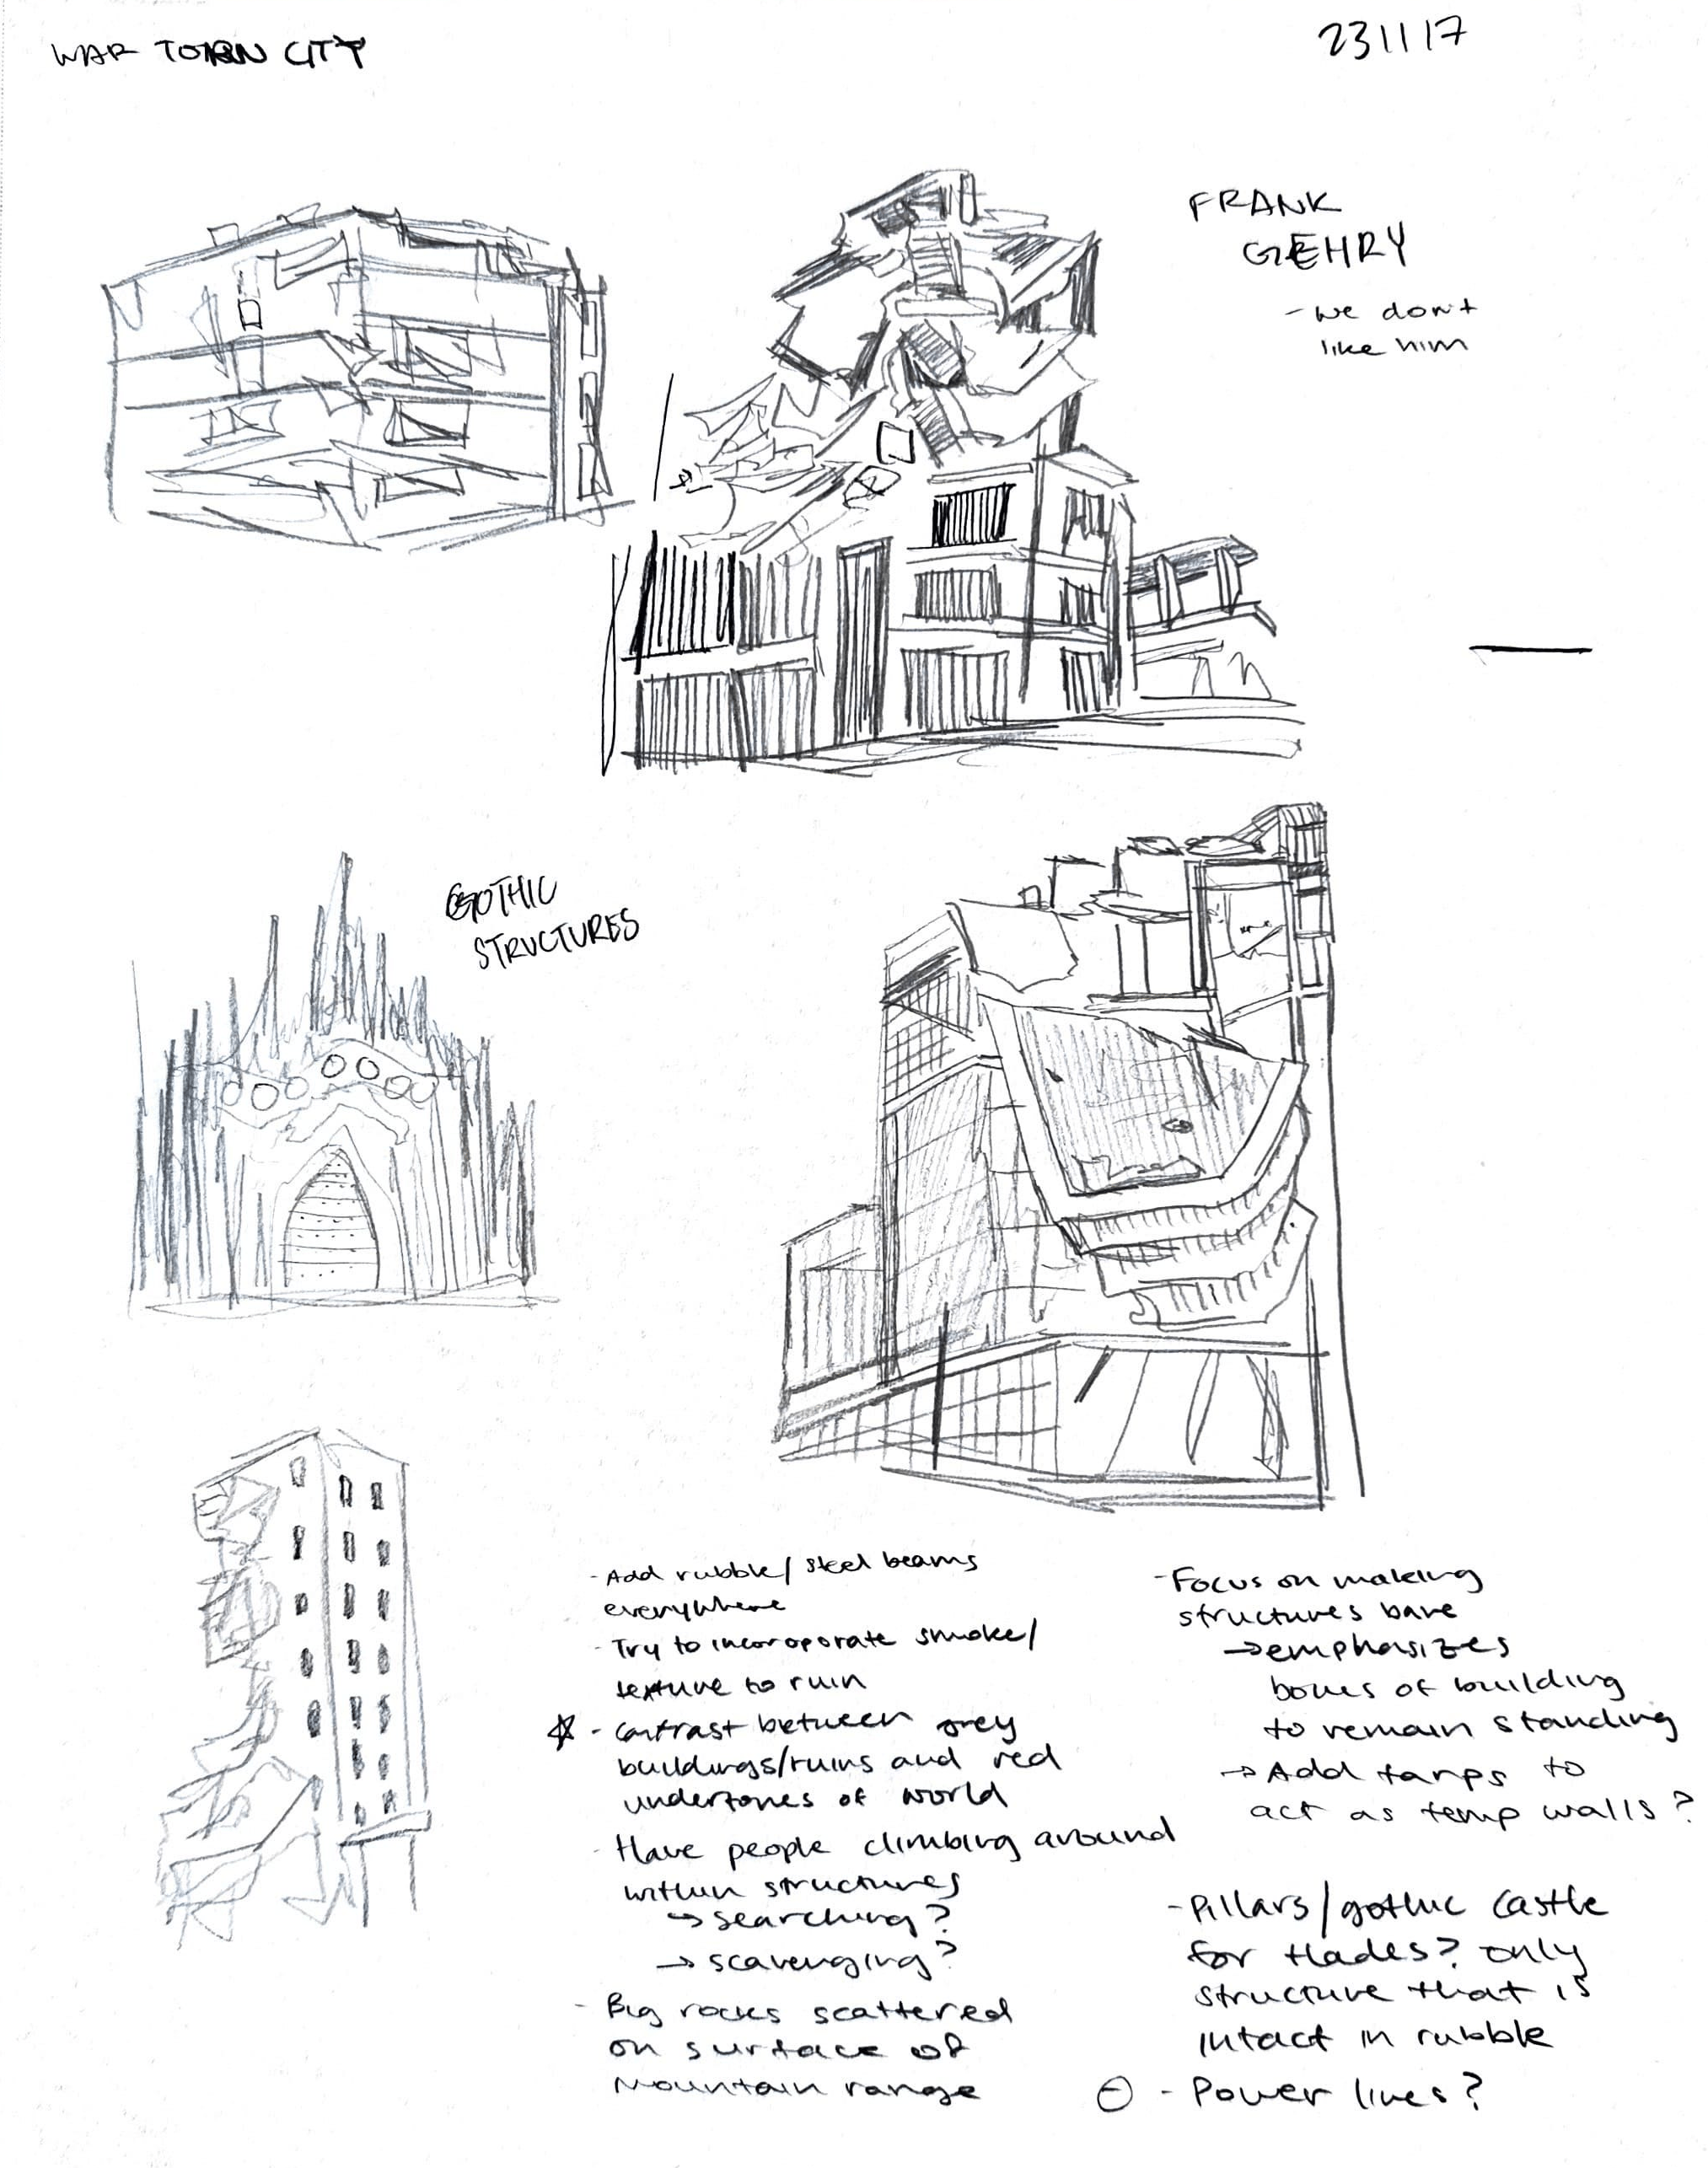 WAR TORN CITY
23 11 17
FRANK
GEHRY
- we don't
like him
GOTHIC
STRUCTURES
- Add rubble/steel beams
everywhere
- Try to incoroporate smoke/
texture to ruin
☆ - contrast between grey
buildings/ruins and red
undertones of world
- Have people climbing around
within structures
→ searching?
→ scavenging?
- Big rocks scattered
on surface of
mountain range
- Focus on making
structures bare
→ emphasizes
bones of building
to remain standing
→ Add tarps to
act as temp walls?
- Pillars/gothic castle
for Hades? only
structure that is
intact in rubble
⊖ - Power lines?